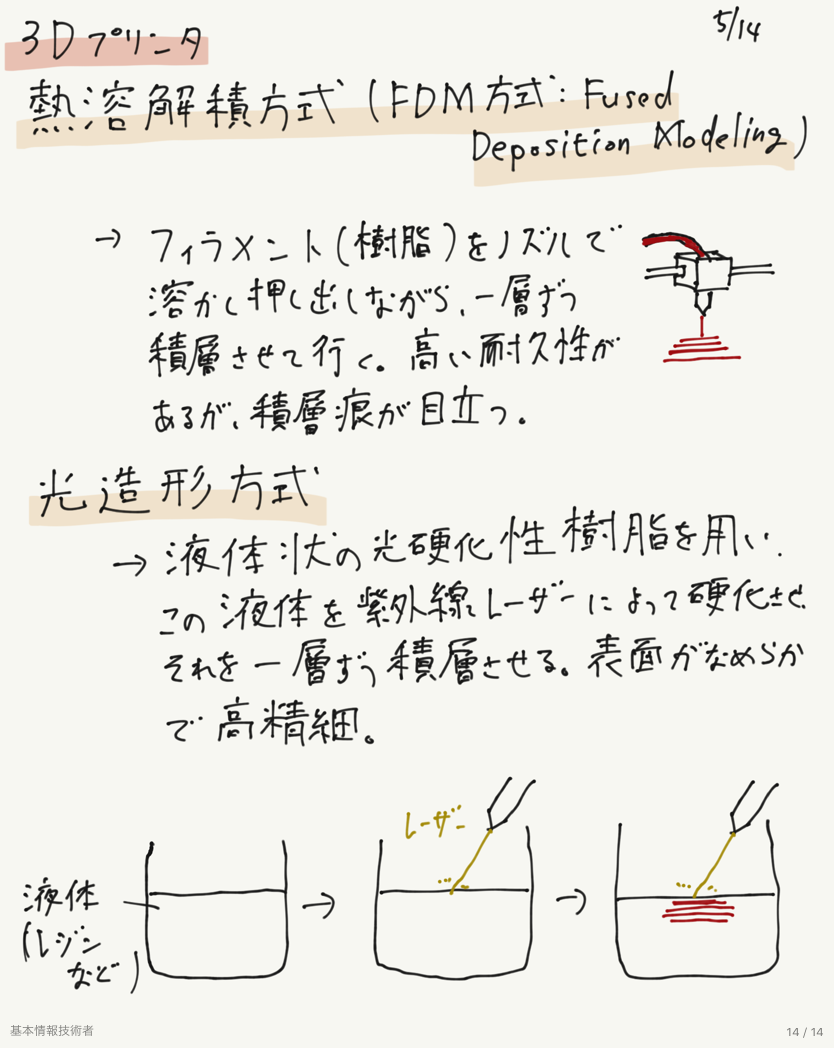 5/14
3Dプリンタ
熱溶解積方式(FDM方式:Fused
Deposition Modeling)
→ フィラメント(樹脂)をノズルで
溶かし押し出しながら、一層ずつ
積層させて行く。高い耐久性が
あるが、積層痕が目立つ。
光造形方式
→ 液体状の光硬化性樹脂を用い、
この液体を紫外線レーザーによって硬化させ
それを一層ずつ積層させる。表面がなめらか
で高精細。
レーザー
液体
(レジン
など)
→
→
基本情報技術者
14 / 14